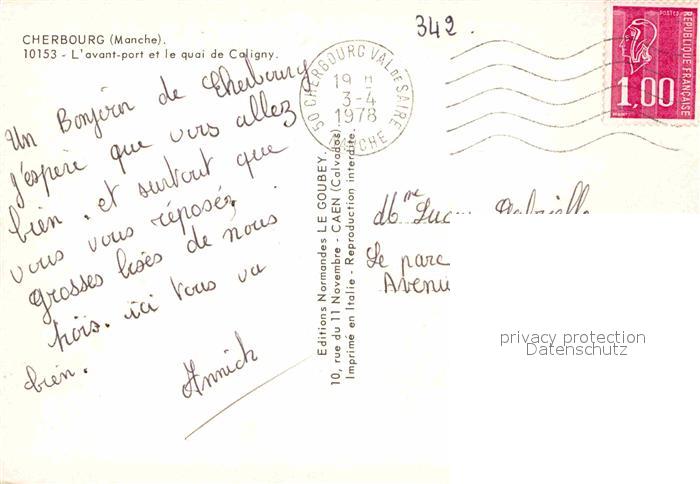 342.
CHERBOURG (Manche).
10153 - L'avant-port et le quai de Caligny.
Un Bonjour de Cherbourg
J'espère que vous allez
bien. et surtout que
vous vous réposéz,
grosses bises de nous
trois. ici tous va
bien.
Annick
50 CHERBOURG VAL DE SAIRE
19 H
3-4
1978
MANCHE
Editions Normandes LE GOUBEY.
10, rue du 11 Novembre - CAEN (Calvados).
Imprimé en Italie - Reproduction interdite.
POSTES
REPUBLIQUE FRANÇAISE
1,00
Mme
Le parc
Avenu
privacy protection
Datenschutz